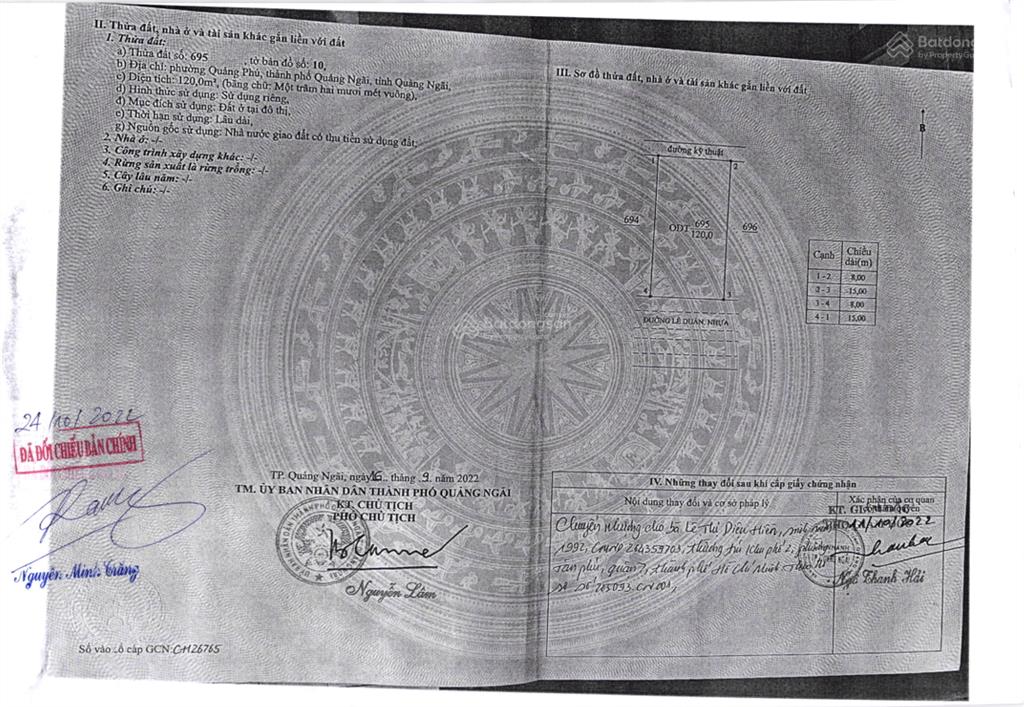 II. Thửa đất, nhà ở và tài sản khác gắn liền với đất
1. Thửa đất:
a) Thửa đất số: 695 , tờ bản đồ số: 10,
b) Địa chỉ: phường Quảng Phú, thành phố Quảng Ngãi, tỉnh Quảng Ngãi,
c) Diện tích: 120,0m², (bằng chữ: Một trăm hai mươi mét vuông),
d) Hình thức sử dụng: Sử dụng riêng,
đ) Mục đích sử dụng: Đất ở tại đô thị,
e) Thời hạn sử dụng: Lâu dài,
g) Nguồn gốc sử dụng: Nhà nước giao đất có thu tiền sử dụng đất;
2. Nhà ở: -/-
3. Công trình xây dựng khác: -/-
4. Rừng sản xuất là rừng trồng: -/-
5. Cây lâu năm: -/-
6. Ghi chú: -/-
24/10/2022
ĐÃ ĐỐI CHIẾU BẢN CHÍNH
Nguyễn Minh Trăng
TP. Quảng Ngãi, ngày 16 tháng 9 năm 2022
TM. ỦY BAN NHÂN DÂN THÀNH PHỐ QUẢNG NGÃI
KT. CHỦ TỊCH
PHÓ CHỦ TỊCH
Nguyễn Lâm
Số vào sổ cấp GCN: CH26765
Batdongsan
by PropertyGuru
III. Sơ đồ thửa đất, nhà ở và tài sản khác gắn liền với đất
B
đường kỹ thuật
1
2
694
ODT 695
120,0
696
4
3
ĐƯỜNG LÊ DUẨN, NHỰA
Cạnh Chiều dài(m)
1 - 2 8,00
2 - 3 15,00
3 - 4 8,00
4 - 1 15,00
Batdongsan
IV. Những thay đổi sau khi cấp giấy chứng nhận
Nội dung thay đổi và cơ sở pháp lý
Xác nhận của cơ quan
có thẩm quyền
Chuyển nhượng cho bà Lê Thị Diệu Hiền, sinh năm
1992, thường trú Khu phố 2, phường
Tân Phú, quận 7, thành phố Hồ Chí Minh
KT. GIÁM ĐỐC
11/10/2022
Thanh Hải